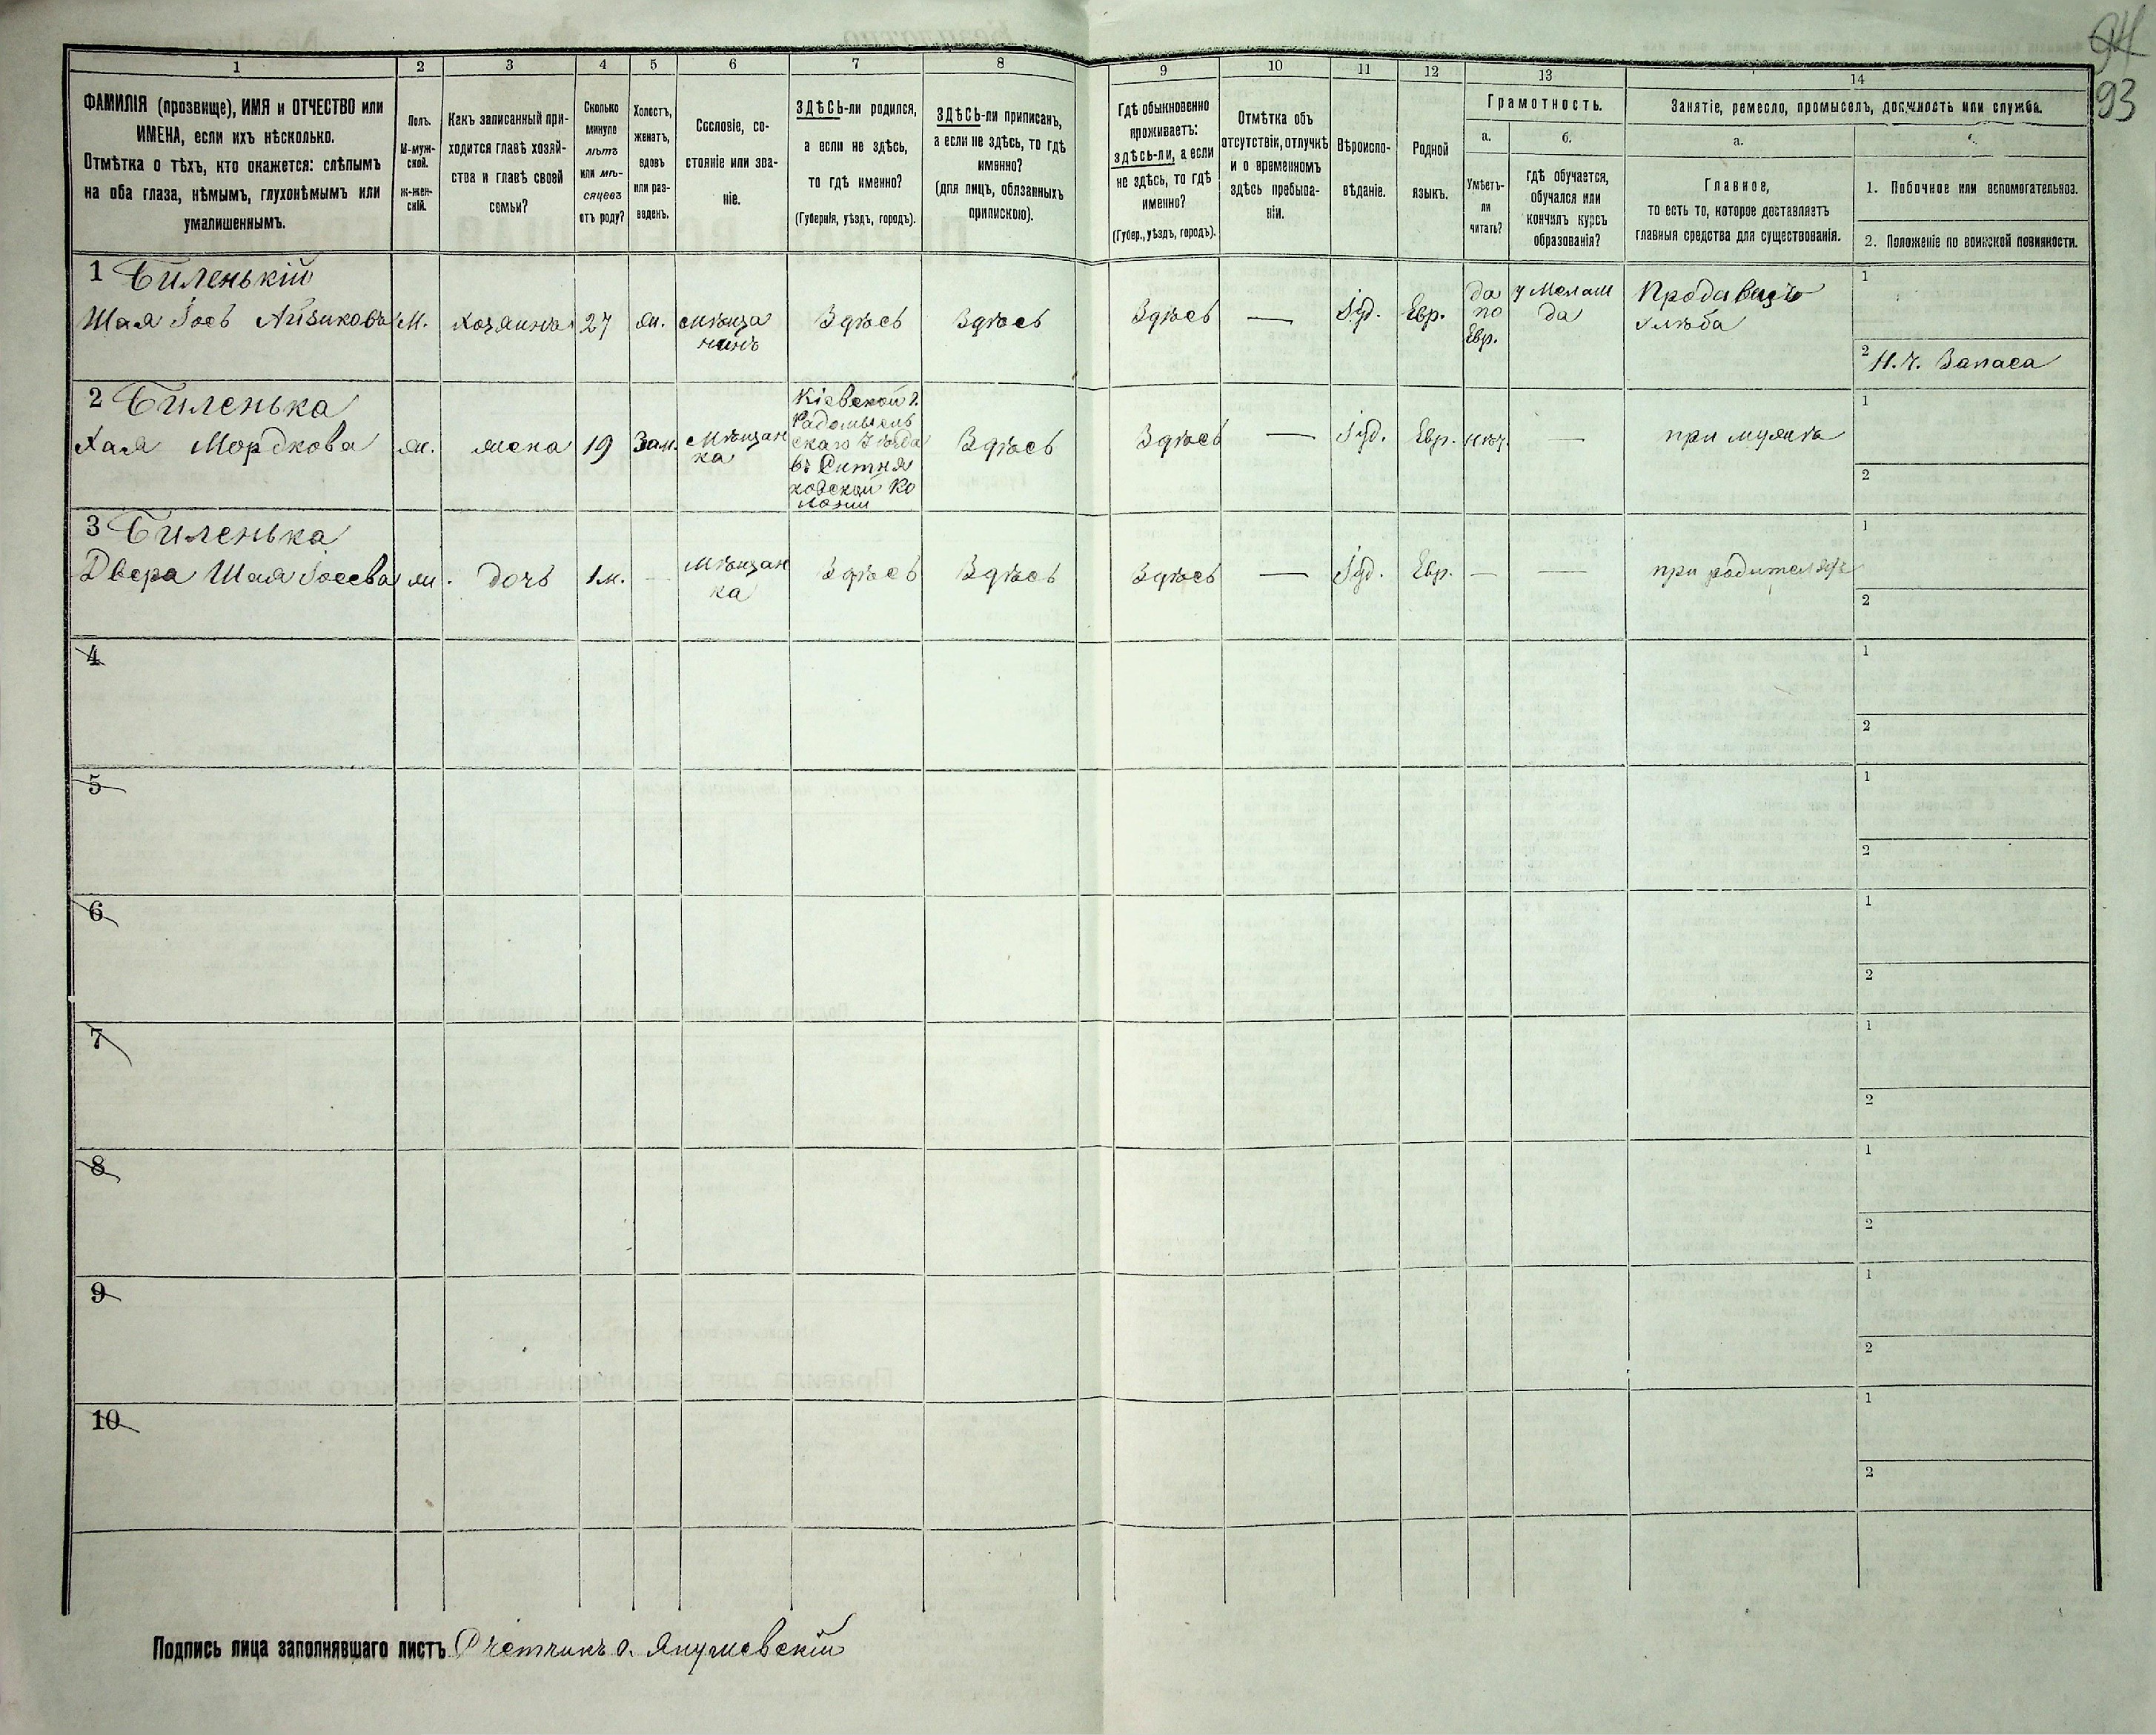 94
93
1
2
3
4
5
6
7
8
9
10
11
12
13
14
ФАМИЛІЯ (прозвище), ИМЯ и ОТЧЕСТВО или
ИМЕНА, если ихъ нѣсколько.
Отмѣтка о тѣхъ, кто окажется: слѣпымъ
на оба глаза, нѣмымъ, глухонѣмымъ или
умалишеннымъ.
Полъ.
М-муж-
ской.
ж-жен-
скій.
Какъ записанный при-
ходится главѣ хозяй-
ства и главѣ своей
семьи?
Сколько
минуло
лѣтъ
или мѣ-
сяцевъ
отъ роду?
Холостъ,
женатъ,
вдовъ
или раз-
веденъ.
Сословіе, со-
стояніе или зва-
ніе.
ЗДѢСЬ-ли родился,
а если не здѣсь,
то гдѣ именно?
(Губернія, уѣздъ, городъ).
ЗДѢСЬ-ли приписанъ,
а если не здѣсь, то гдѣ
именно?
(для лицъ, обязанныхъ
припискою).
Гдѣ обыкновенно
проживаетъ:
здѣсь-ли, а если
не здѣсь, то гдѣ
именно?
(Губер., уѣздъ, городъ).
Отмѣтка объ
отсутствіи, отлучкѣ
и о временномъ
здѣсь пребыва-
ніи.
Вѣроиспо-
вѣданіе.
Родной
языкъ.
Грамотность.
а.
Умѣетъ-
ли
читать?
б.
гдѣ обучается,
обучался или
кончилъ курсъ
образованія?
Занятіе, ремесло, промыселъ, должность или служба.
а.
Главное,
то есть то, которое доставляетъ
главныя средства для существованія.
1. Побочное или вспомогательное.
2. Положеніе по воинской повинности.
1 Биленькій
Шая Іось Айзиковъ
М.
хозяинъ
27
ж.
мѣща
нинъ
Здѣсь
Здѣсь
Здѣсь
—
Іуд.
Евр.
да
по
Евр.
у Мелам
да
Продавецъ
хлѣба
1
2 Н. Ч. Запаса
2 Биленька
Хая Мордкова
ж.
жена
19
Зам.
Мѣщан
ка
Кіевской г.
Радомысль
скаго Уѣзда
въ Ситня
ковской Ко
лоніи
Здѣсь
Здѣсь
—
Іуд.
Евр.
нѣт.
—
при мужѣ
1
2
3 Биленька
Двера Шая Іосева
ж.
дочь
1 м.
—
Мѣщан
ка
Здѣсь
Здѣсь
Здѣсь
—
Іуд.
Евр.
—
—
при родителяхъ
1
2
4
1
2
5
1
2
6
1
2
7
1
2
8
1
2
9
1
2
10
1
2
Подпись лица заполнявшаго листъ Счетчикъ